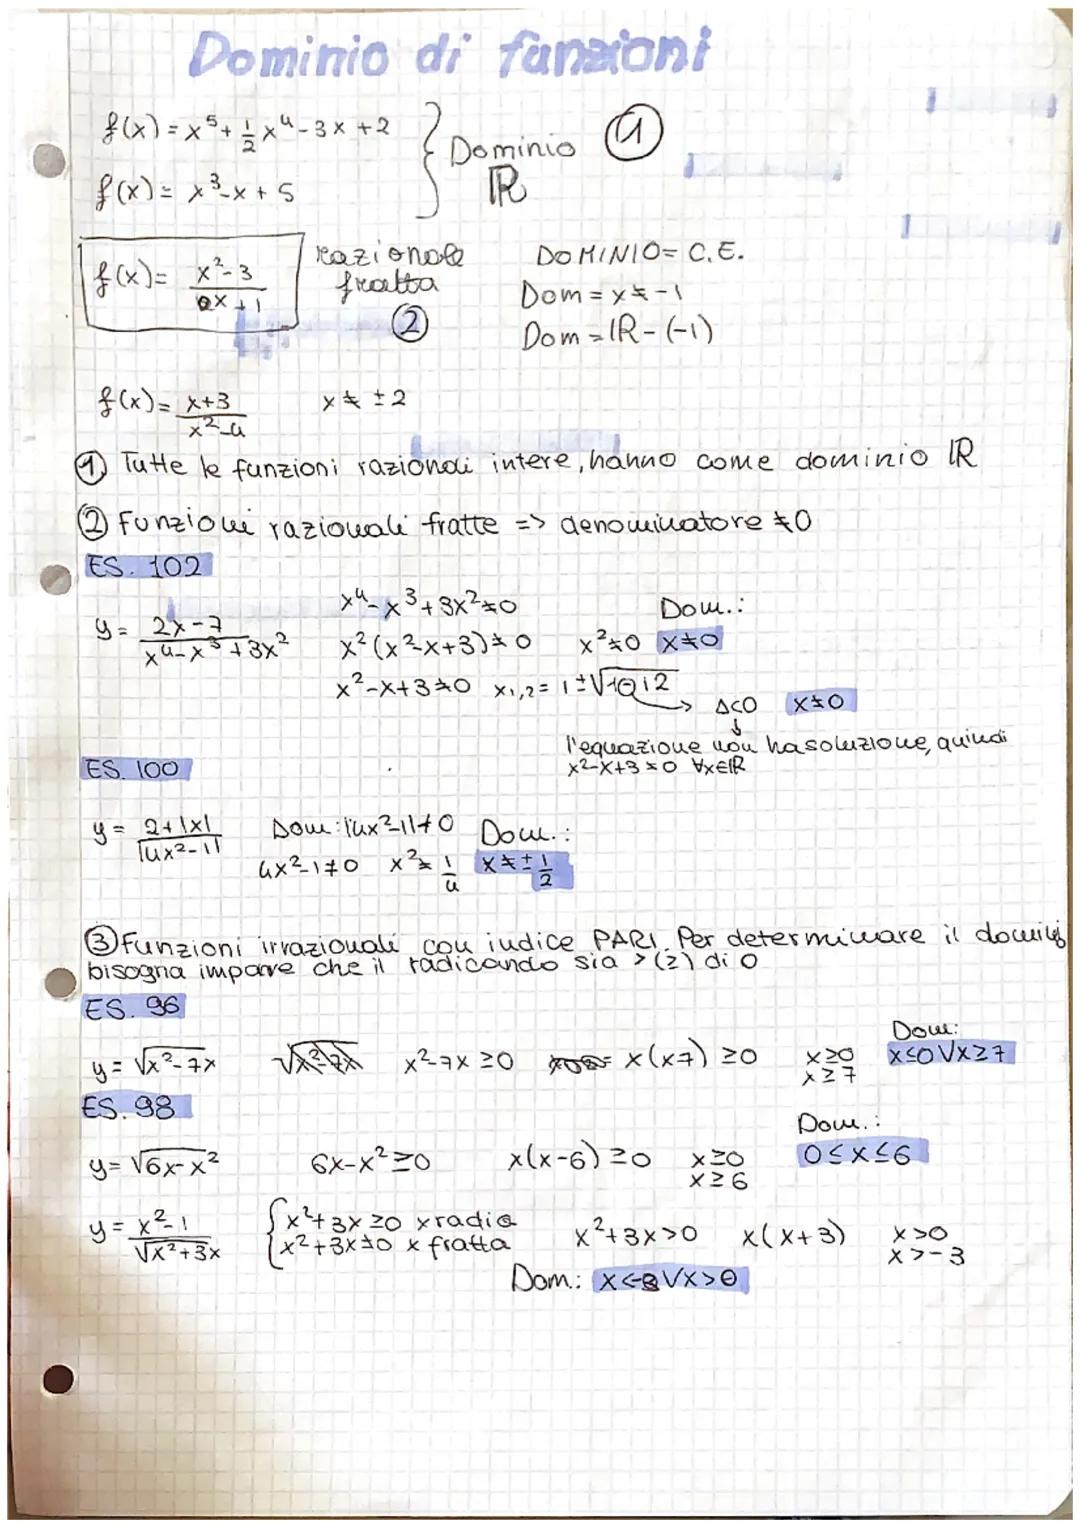 Dominio di funzioni
f(x) = x⁵ + 1/2 x⁴ - 3x + 2 } Dominio ①
f(x) = x³ - x + 5 ℝ
f(x) = (x² - 3)/(x + 1) razionale fratta ② DOMINIO = C.E.
Dom = x ≠ -1
Dom = ℝ - (-1)
f(x) = (x+3)/(x²-4) x ≠ ± 2
① Tutte le funzioni razionali intere, hanno come dominio ℝ
② Funzioni razionali fratte => denominatore ≠ 0
ES. 102
x⁴ - x³ + 3x² ≠ 0 Dom.:
y = (2x - 7)/(x⁴ - x³ + 3x²) x² (x² - x + 3) ≠ 0 x² ≠ 0 x ≠ 0
x² - x + 3 ≠ 0 x₁,₂ = 1 ± √ 12 → Δ<0 x ≠ 0
↓
l'equazione non ha soluzione, quindi
x² - x + 3 ≠ 0 ∀x∈ℝ
ES. 100
y = (2 + |x|)/|4x² - 1| Dom: |4x² - 1| ≠ 0 Dom.:
4x² - 1 ≠ 0 x² ≠ 1/4 x ≠ ± 1/2
③ Funzioni irrazionali con indice PARI. Per determinare il
bisogna imporre che il radicando sia > (≥) di 0
ES. 96
Dom:
y = √(x² - 7x) √(x² - 7x) x² - 7x ≥ 0 x(x 7) ≥ 0 x ≥ 0 x ≤ 0 ∨ x ≥ 7
x ≥ 7
ES. 98
Dom.:
y = √(6x - x²) 6x - x² ≥ 0 x(x - 6) ≥ 0 x ≥ 0 0 ≤ x ≤ 6
x ≥ 6
y = (x² - 1)/√(x² + 3x) { x² + 3x ≥ 0 x radic x² + 3x > 0 x(x + 3) x > 0
x² + 3x ≠ 0 x fratta x > -3
Dom.: x < -3 ∨ x > 0